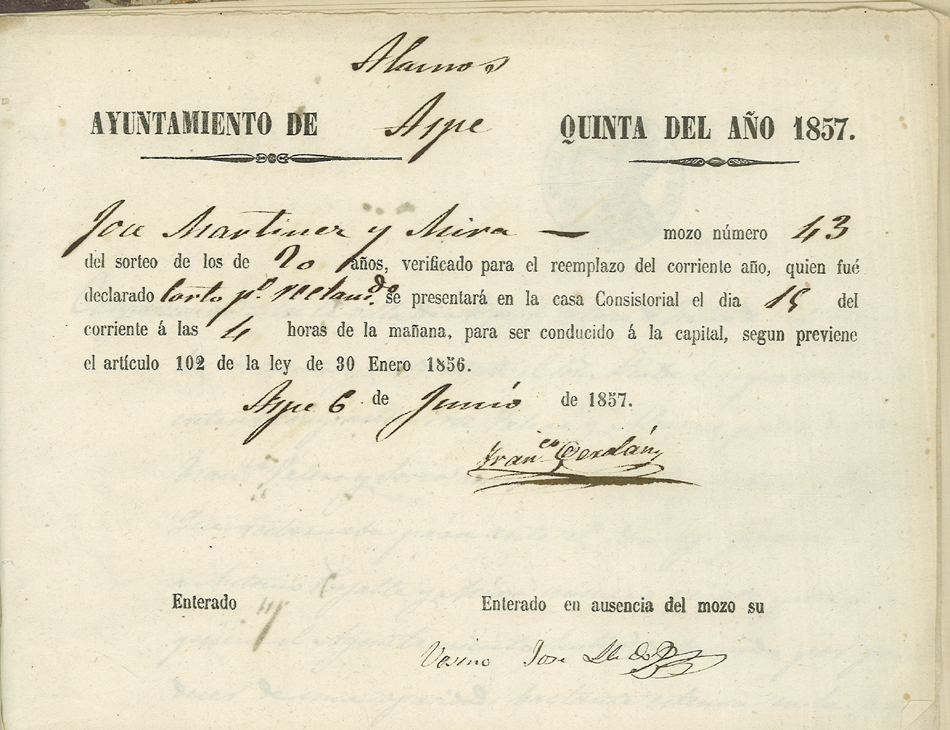 Alamos
AYUNTAMIENTO DE Aspe QUINTA DEL AÑO 1857.
Jose Martinez y Mira — mozo número 43
del sorteo de los de 20 años, verificado para el reemplazo del corriente año, quien fué
declarado corto pr. reclamdo. se presentará en la casa Consistorial el dia 15 del
corriente á las 4 horas de la mañana, para ser conducido á la capital, segun previene
el artículo 102 de la ley de 30 Enero 1856.
Aspe 6 de Junió de 1857.
Franco Cerdán
Enterado
Enterado en ausencia del mozo su
Vesino Jose